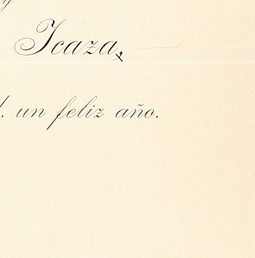 y
Icaza,
d. un feliz año.